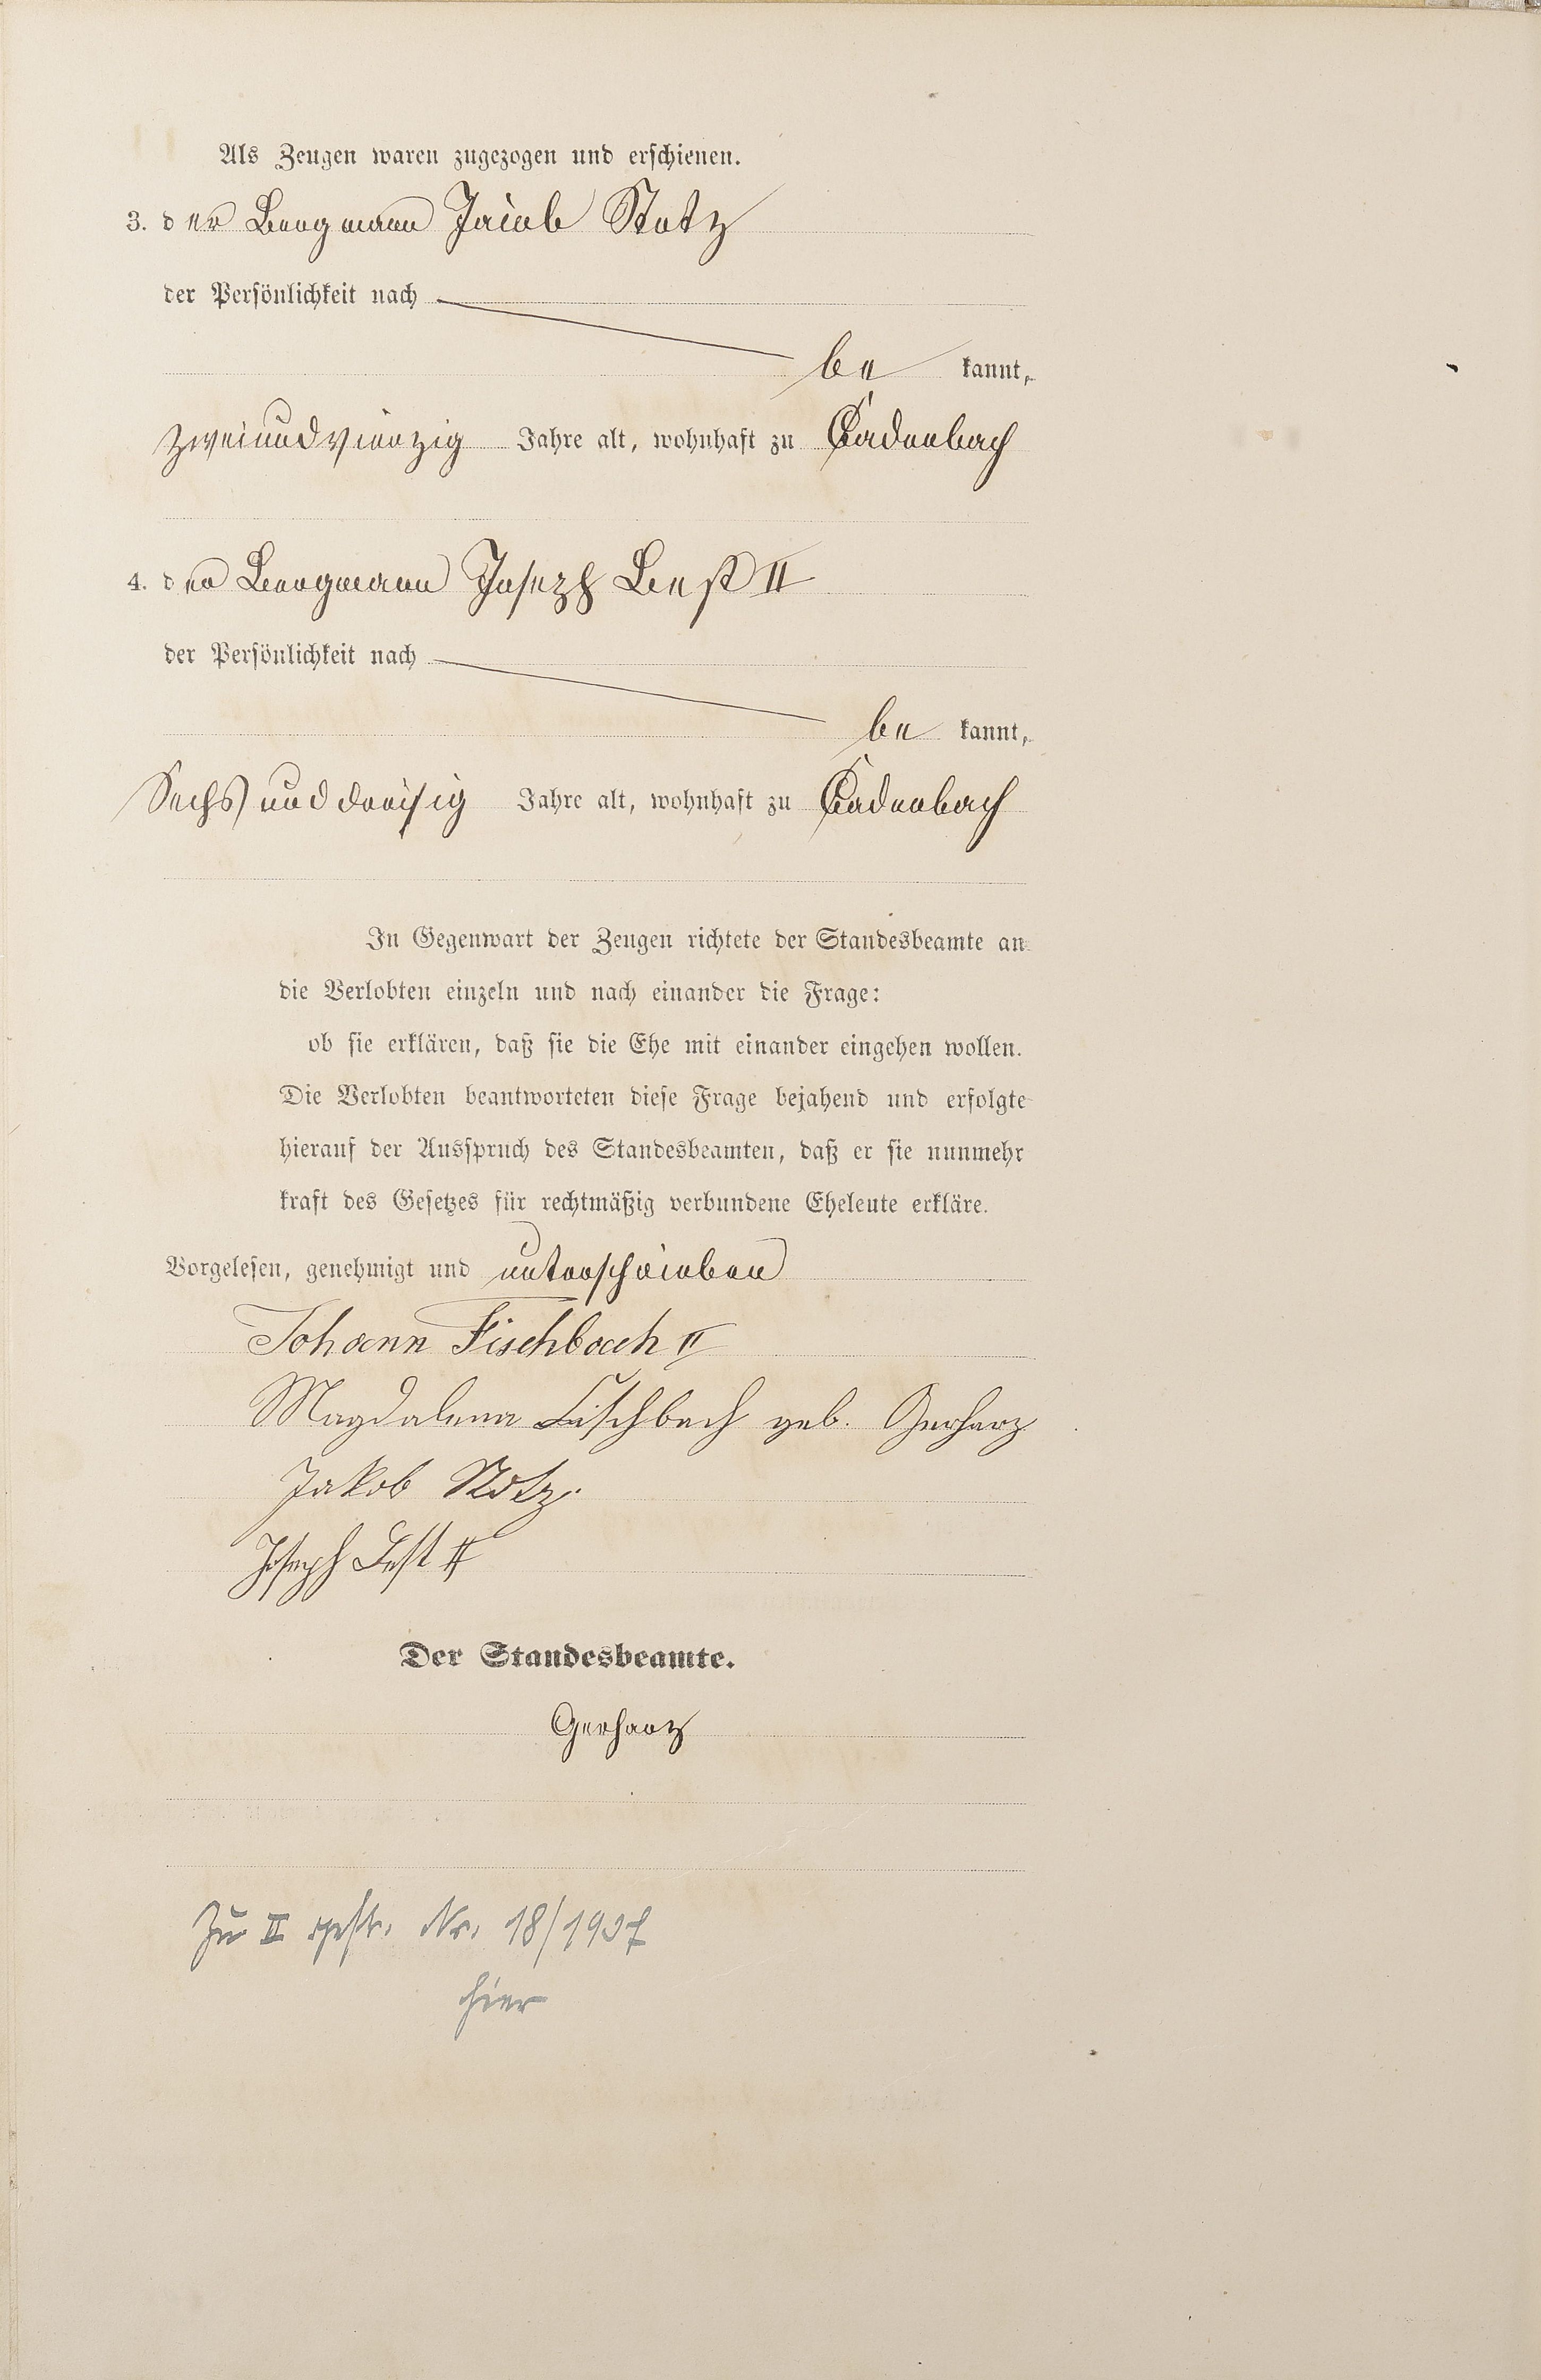 Als Zeugen waren zugezogen und erschienen.
3. der Bergmann Jacob Stotz
der Persönlichkeit nach
be kannt,
zweiundvierzig Jahre alt, wohnhaft zu Cadenbach
4. der Bergmann Joseph Best II
der Persönlichkeit nach
be kannt,
Sechs und dreisig Jahre alt, wohnhaft zu Cadenbach
In Gegenwart der Zeugen richtete der Standesbeamte an
die Verlobten einzeln und nach einander die Frage:
ob sie erklären, daß sie die Ehe mit einander eingehen wollen.
Die Verlobten beantworteten diese Frage bejahend und erfolgte
hierauf der Ausspruch des Standesbeamten, daß er sie nunmehr
kraft des Gesetzes für rechtmäßig verbundene Eheleute erkläre.
Vorgelesen, genehmigt und unterschrieben
Johann Fischbach II
Magdalena Fischbach geb. Gerharz
Jakob Stotz.
Joseph Best II
Der Standesbeamte.
Gerharz
Zu II Nr. 18/1937
hier